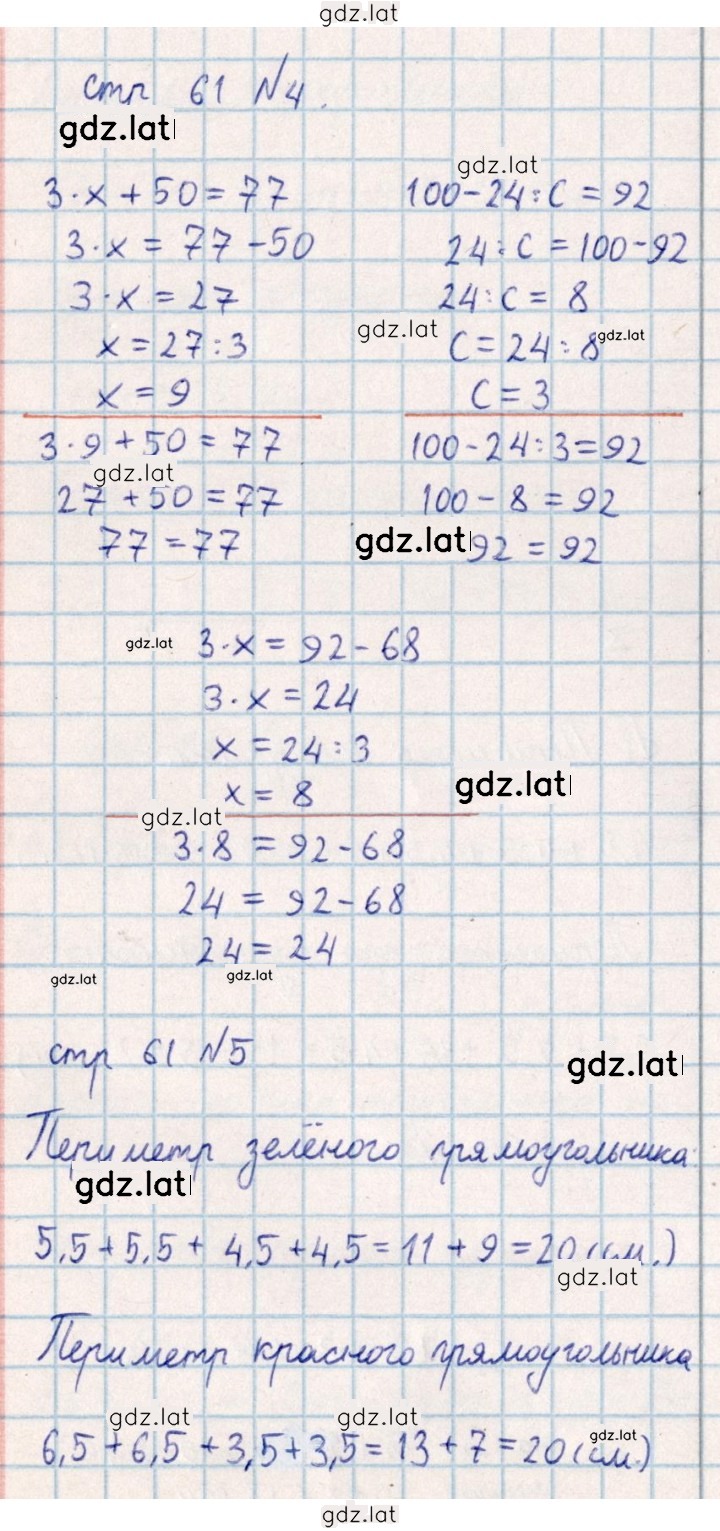 gdz.lat
стр 61 №4.
gdz.lat
gdz.lat
3·x+50=77
3·x=77-50
3·x=27
x=27:3
x=9
3·9+50=77
gdz.lat
27+50=77
77=77
100-24:C=92
24:C=100-92
24:C=8
gdz.lat
C=24:8
gdz.lat
C=3
100-24:3=92
100-8=92
gdz.lat
92=92
gdz.lat
3·x=92-68
3·x=24
x=24:3
x=8
gdz.lat
gdz.lat
3·8=92-68
24=92-68
24=24
gdz.lat
gdz.lat
стр 61 №5
gdz.lat
Периметр зелёного прямоугольника:
gdz.lat
5,5+5,5+4,5+4,5=11+9=20(см.)
gdz.lat
Периметр красного прямоугольника
gdz.lat
gdz.lat
gdz.lat
6,5+6,5+3,5+3,5=13+7=20(см.)
gdz.lat